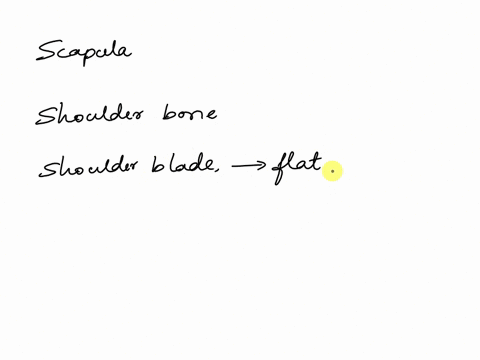 Scapula
Shoulder bone
Shoulder blade, → flat